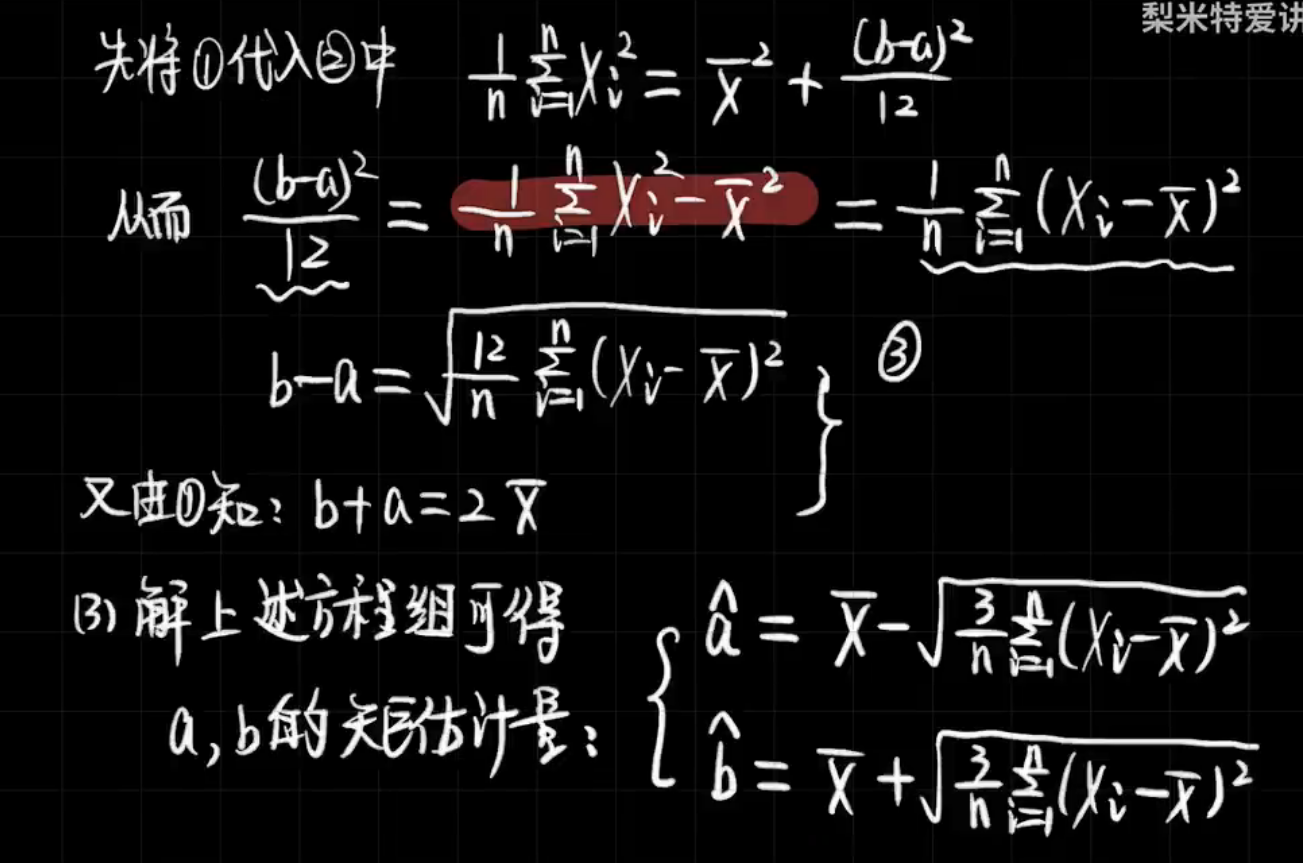 梨米特爱讲
先将①代入②中 $\frac{1}{n}\sum_{i=1}^{n}X_i^2=\overline{X}^2+\frac{(b-a)^2}{12}$
从而 $\frac{(b-a)^2}{12}=\frac{1}{n}\sum_{i=1}^{n}X_i^2-\overline{X}^2=\frac{1}{n}\sum_{i=1}^{n}(X_i-\overline{X})^2$
$b-a=\sqrt{\frac{12}{n}\sum_{i=1}^{n}(X_i-\overline{X})^2}$ ③
又由①知: $b+a=2\overline{X}$
(3) 解上述方程组可得
a,b的矩估计量:
$\hat{a}=\overline{X}-\sqrt{\frac{3}{n}\sum_{i=1}^{n}(X_i-\overline{X})^2}$
$\hat{b}=\overline{X}+\sqrt{\frac{3}{n}\sum_{i=1}^{n}(X_i-\overline{X})^2}$